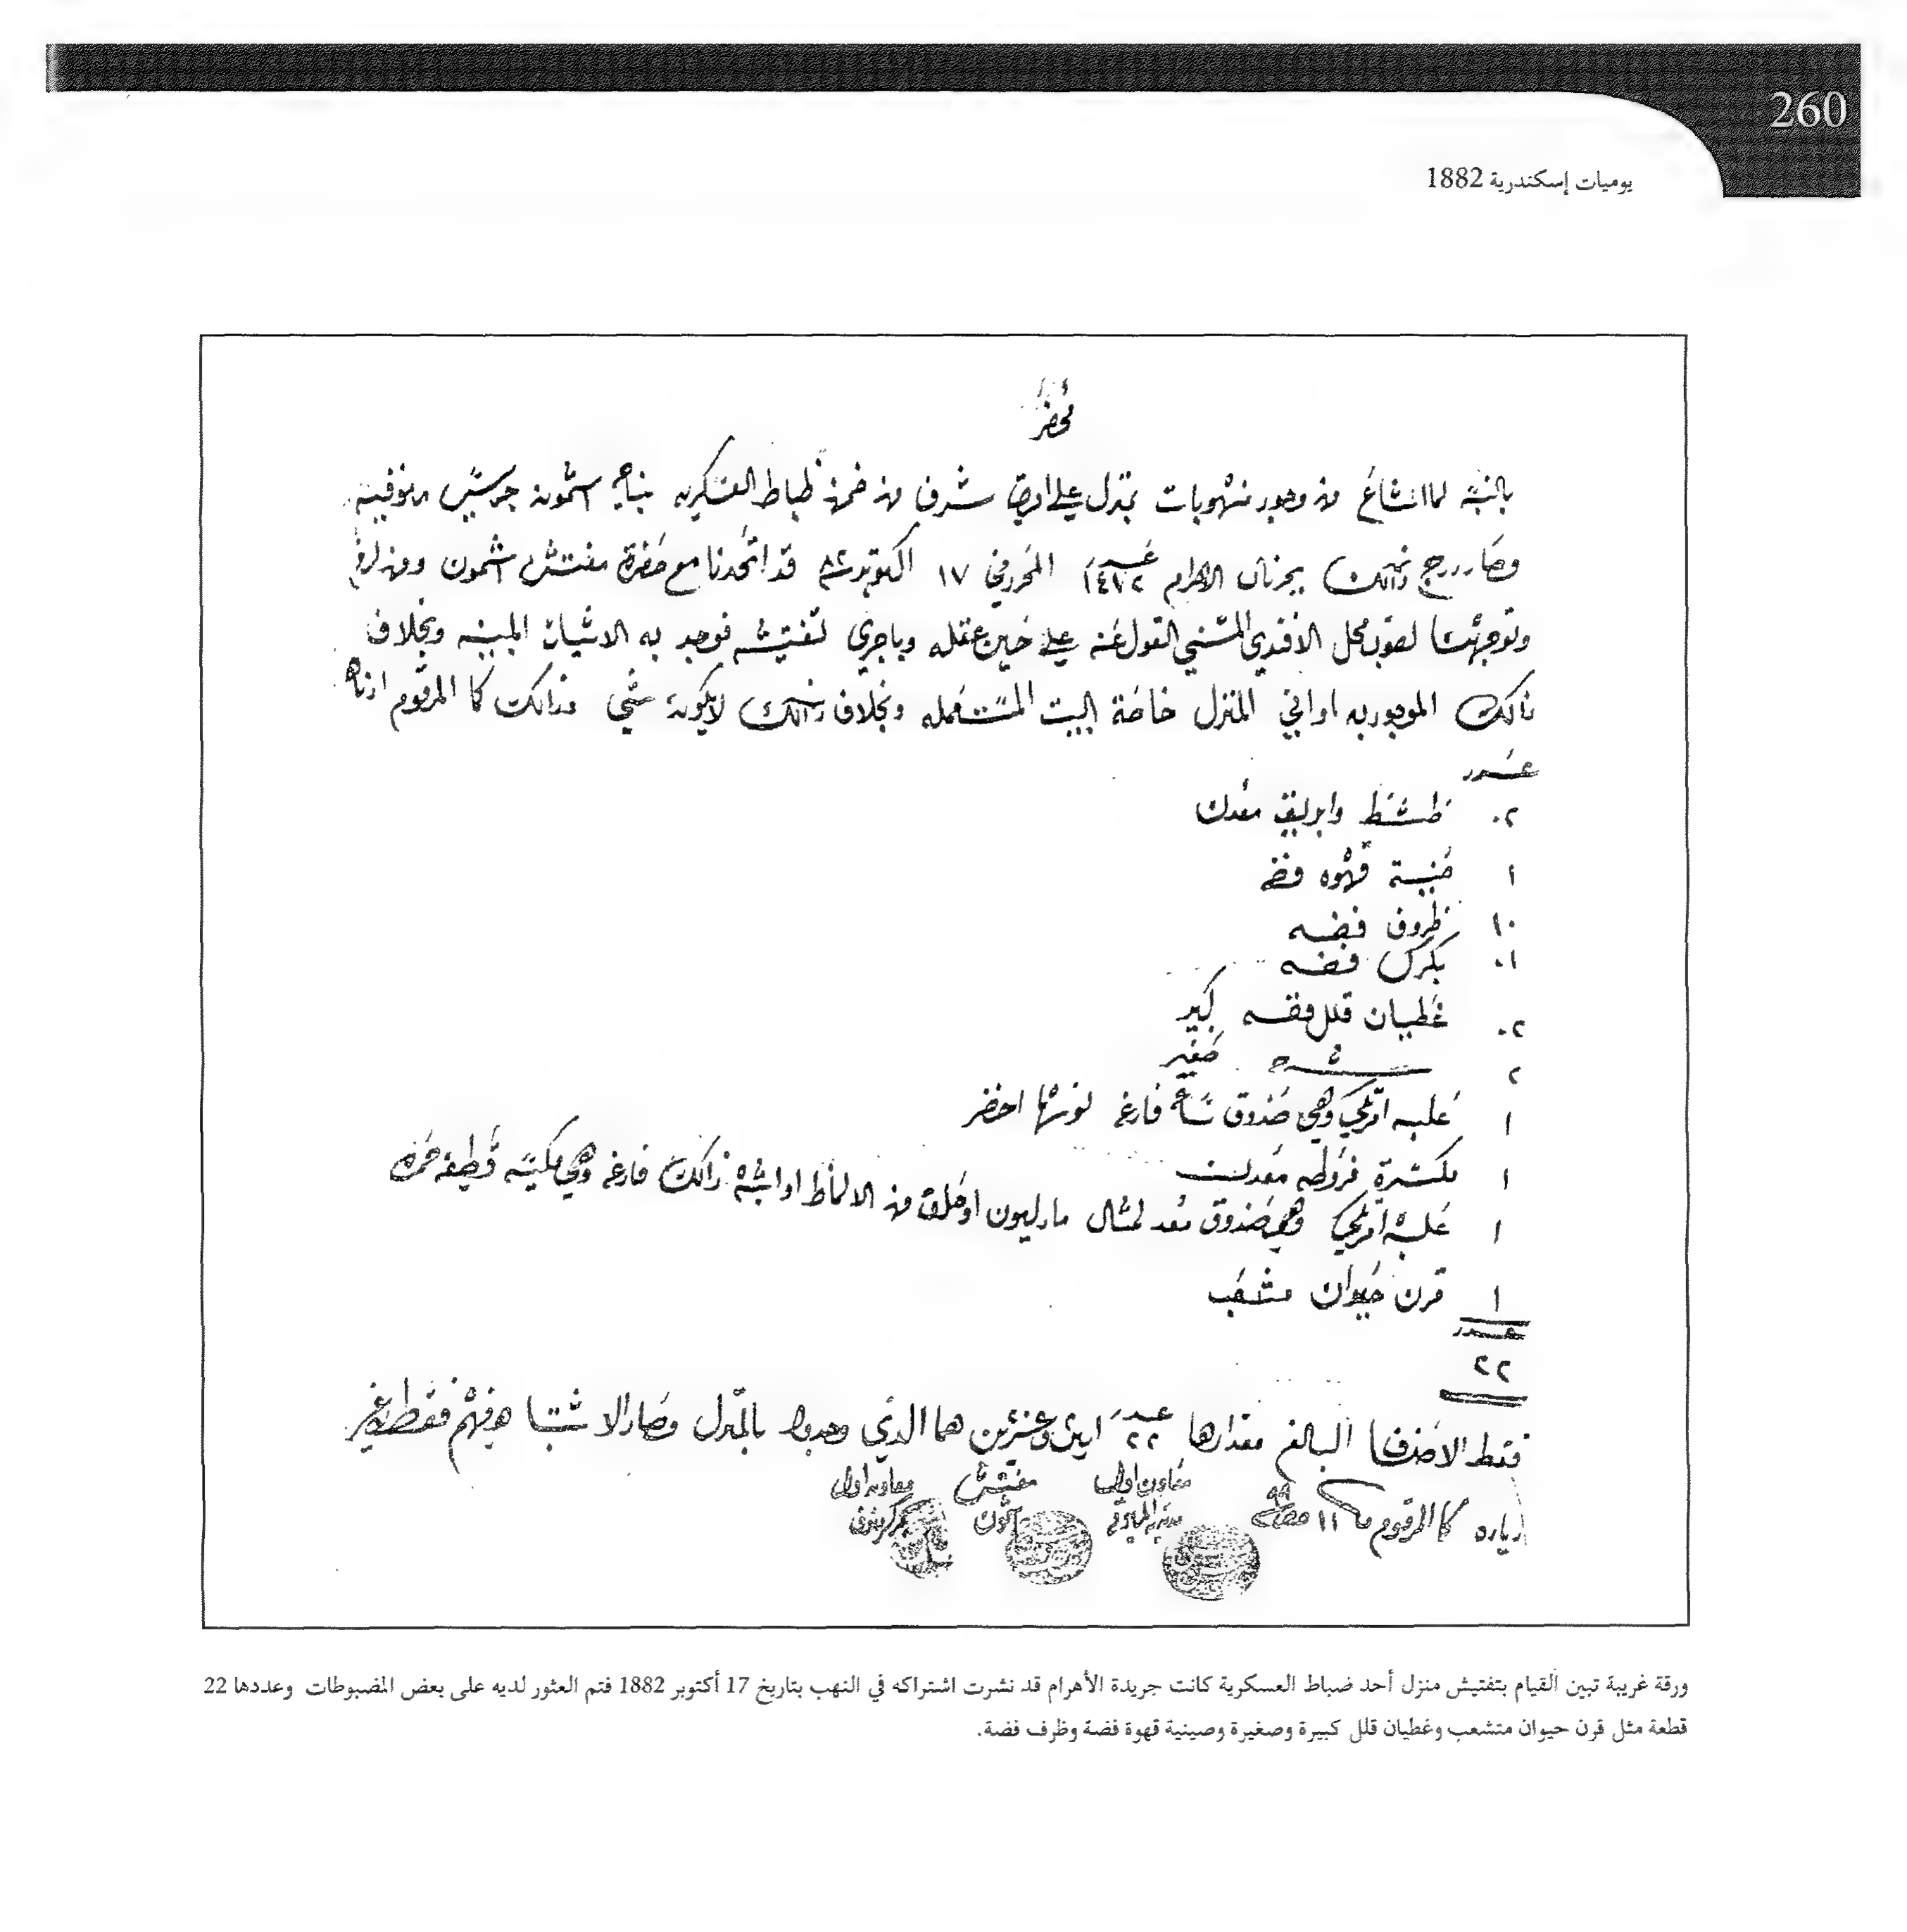 260
يوميات إسكندرية 1882
محضر
بالنسبة لما انشاع من وجود منهوبات بمنزل علي افندي شرف من ضمن ظباط العسكريه بناحية اشمون جريس منوفيه
وصار درج ذالك بجرنال الاهرام عــدد ١٤٨٢ المحرر في ١٧ اكتوبر سنة ٨٢ قد اتحدنا مع حضرة مفتش اشمون ومن لزم
وتوجهنا لصوب محل الافندي المتسمي القول عنه علي حين غفله وباجري تفتيشه فوجد به الاشيات المبينه وبخلاف
ذالك الموجود به اواني المنزل خاصة البيت المستعمله وبخلاف ذالك لايكون شي وذالك كا المرقوم ادناه
عــدد
٠٢ طشط وابريق معدن
١ صنية قهوه فضه
١٠ ظروف فضه
٠١ بكرج فضه
٠٢ غطيان قلل فضه كبير
٢ شرحه صغير
١ علبه افرنكي وهي صندوق ساعة فارغه لونها اخضر
١ مكسرة معدن
١ علبة افرنكي وهي صندوق معد لمثال او خلافه من الالماظ او اشبه ذالك فارغه وهي مكسيه قطيفه حمره
١ قرن حيوان متشعب
عــدد
٢٢
فقط الاصناف البالغ مقدارها عــدد ٢٢ اثنين وعشرين هما الذي وجدوا بالمنزل وصار الاشتبا هي فيهم فقط بغير
زياده كا المرقوم ١١ ٩٩
معاون اول مفتش معاون اول
مديرية المنوفية اشمون
ورقة غريبة تبين القيام بتفتيش منزل أحد ضباط العسكرية كانت جريدة الأهرام قد نشرت اشتراكه في النهب بتاريخ 17 أكتوبر 1882 فتم العثور لديه على بعض المضبوطات وعددها 22
قطعة مثل قرن حيوان متشعب وغطيان قلل كبيرة وصغيرة وصينية قهوة فضة وظرف فضة.